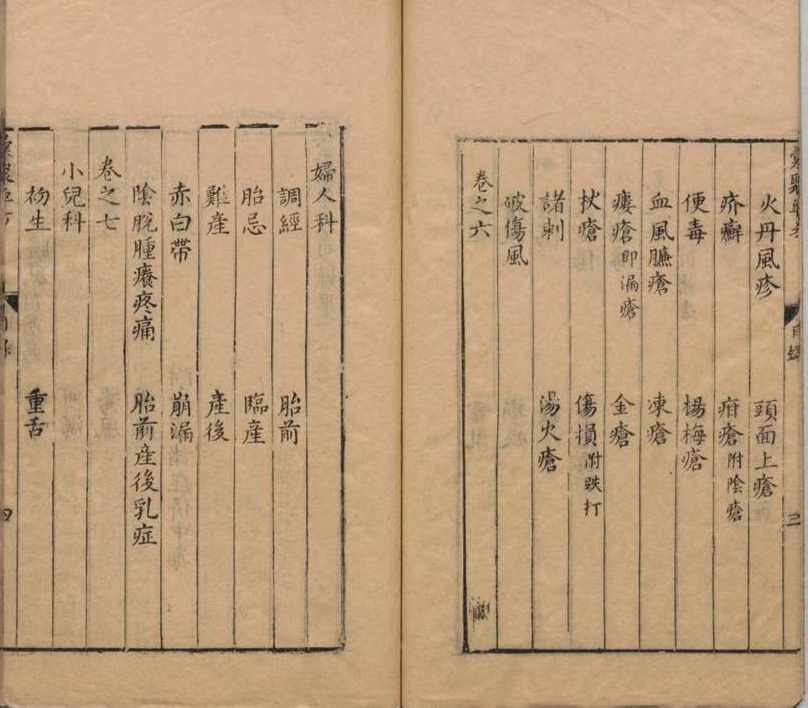 目錄 三
火丹風疹 頭面上瘡
疥癬 疳瘡附陰瘡
便毒 楊梅瘡
血風臁瘡 凍瘡
瘻瘡即漏瘡 金瘡
杖瘡 傷損附跌打
諸刺 湯火瘡
破傷風
卷之六
婦人科
調經 胎前
胎忌 臨產
難產 產後
赤白帶 崩漏
陰脫腫癢疼痛 胎前產後乳症
卷之七
小兒科
初生 重舌
目錄 四